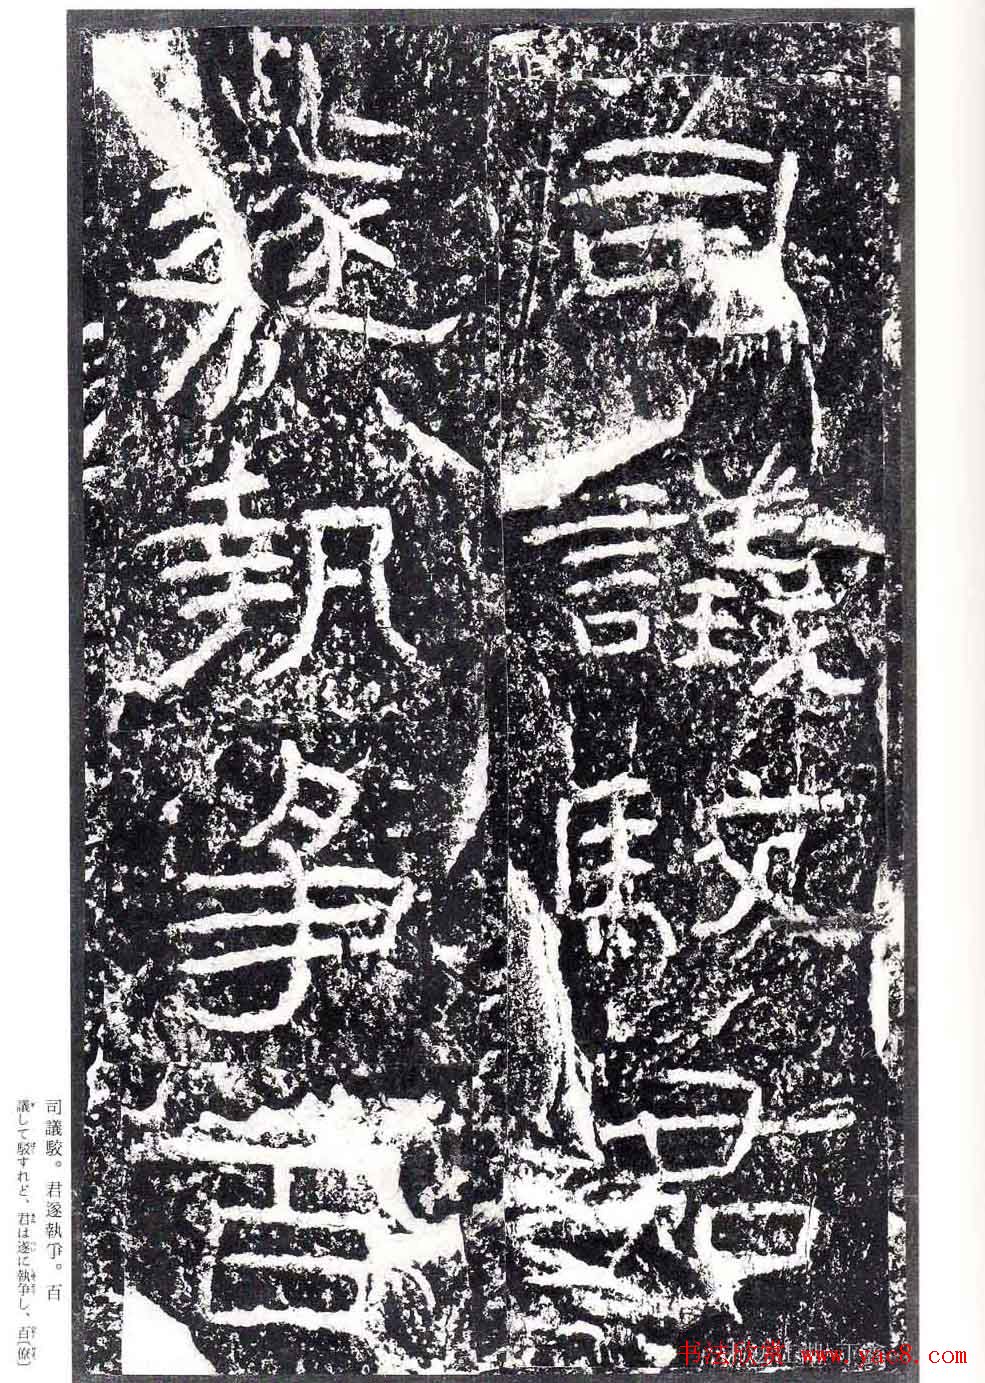 司議駮君
遂執爭百
司議駮。君遂執爭。百
議して駮すれど、君は遂に執爭し、百〔僚〕
书法欣赏 www.yac8.com